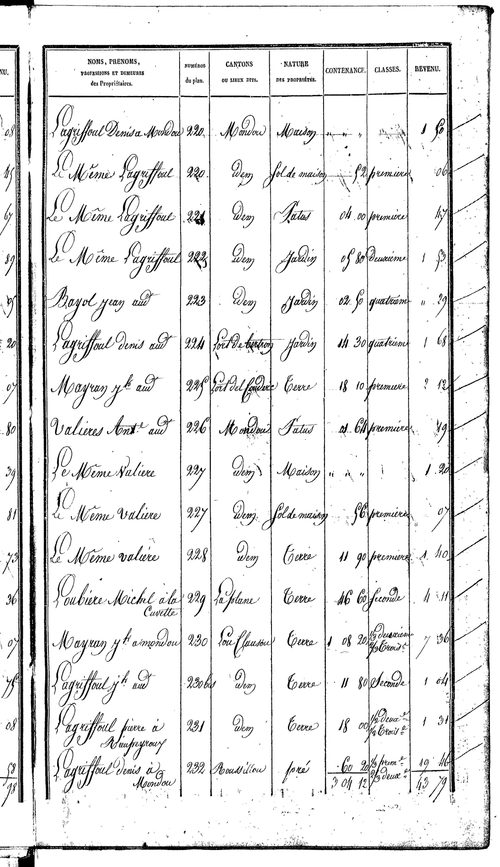 NU.
NOMS, PRENOMS,
PROFESSIONS ET DEMEURES
des Propriétaires.
NUMÉROS
du plan.
CANTONS
OU LIEUX DITS.
NATURE
DES PROPRIÉTÉS.
CONTENANCE.
CLASSES.
REVENU.
Lagriffoul Denis a Mondou 220 Mondou Maison " " " 1 50
Le Même Lagriffoul 220 idem Sol de maison 52 premiere 06
Le Même Lagriffoul 221 idem Patus 04 00 premiere 47
Le Même Lagriffoul 222 idem Jardin 05 80 Deuxième 1 53
Bayol jean aud 223 idem Jardin 02 50 quatrieme " 29
Lagriffoul denis aud 224 Jardin 14 30 quatrieme 1 68
Mayran jh aud 225 Terre 18 10 premiere 2 12
Valieres Ante aud 226 Mondou Patus 01 64 premiere 19
Le Même Valiere 227 idem Maison " " " 1 20
Le Même Valiere 227 idem Sol de maison 56 premiere 07
Le Même valiere 228 idem Terre 11 90 premiere 1 40
Loubiere Michel à la Cuvette 229 La plane Terre 46 60 Seconde 4 11
Mayran jh a mondou 230 Lou Clausou Terre 1 08 20 1/2 deuxieme 1/2 Troise 7 36
Lagriffoul jh aud 230 bis idem Terre 11 80 Seconde 1 04
Lagriffoul pierre à Rampeyroux 231 idem Terre 18 00 1/2 deuxe 1/2 Troise 1 31
Lagriffoul denis à Mondou 232 Roussillou pré 60 20 1/2 preme 1/2 deuxe 19 46
3 04 12 43 79